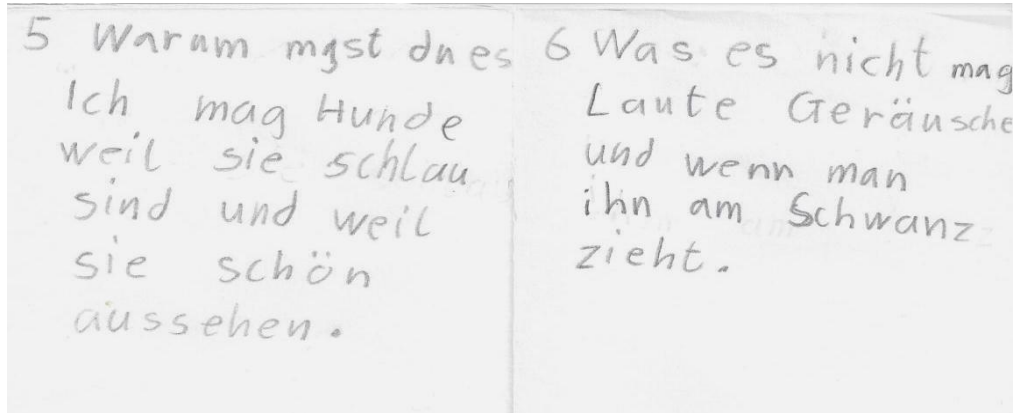 5 Warum mgst du es
Ich mag Hunde
weil sie schlau
sind und weil
sie schön
aussehen.
6 Was es nicht mag
Laute Geräusche
und wenn man
ihn am Schwanz
zieht.